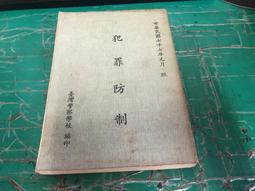 中華民國七十七年元月 版
犯罪防制
臺灣警察學校 編印